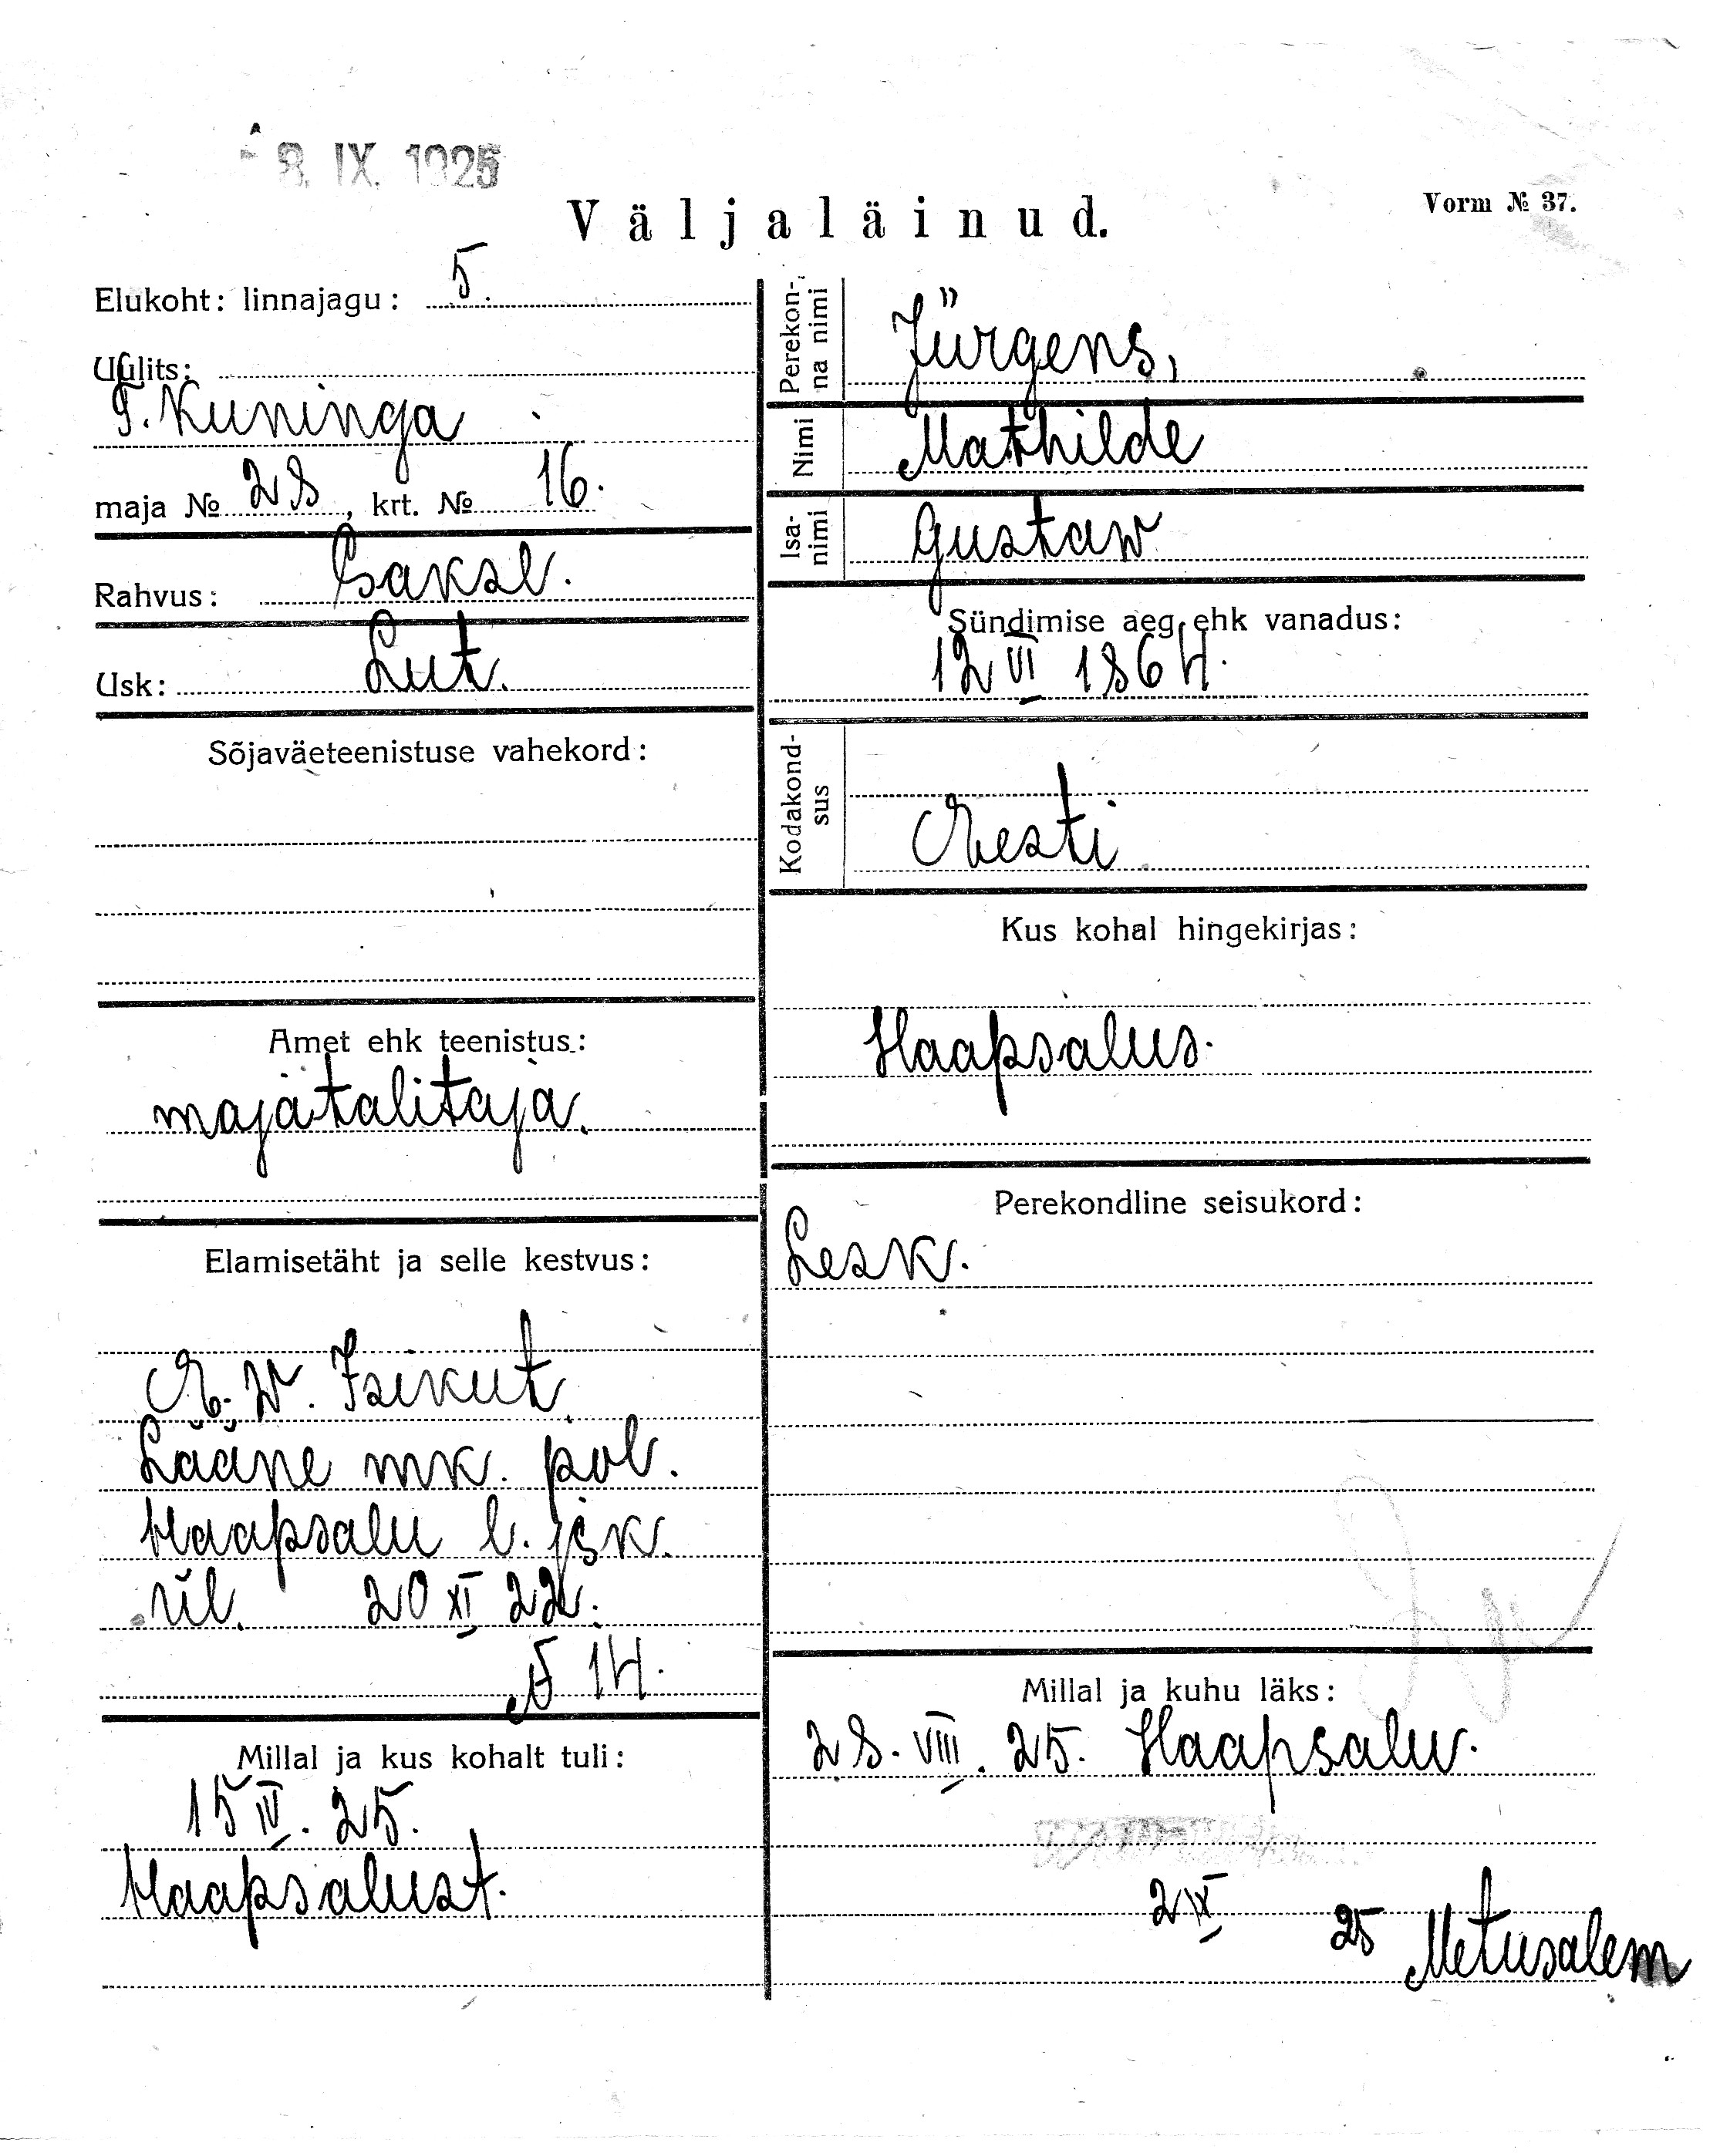 8. IX. 1925
Väljaläinud.
Vorm № 37.
Elukoht: linnajagu: 5.
Uulits:
T. Kuninga
maja № 28, krt. № 16.
Rahvus: Saksl.
Usk: Lut.
Sõjaväeteenistuse vahekord:
Amet ehk teenistus:
majatalitaja.
Elamisetäht ja selle kestvus:
E. W. Isikut.
Lääne mk. pol.
Haapsalu l. jsk.
ül. 20 XI 22.
№ 14.
Millal ja kus kohalt tuli:
15 IV. 25.
Haapsalust.
Perekonna nimi
Jürgens,
Nimi
Mathilde
Isanimi
Gustaw
Sündimise aeg ehk vanadus:
12 VI 1864.
Kodakondsus
Eesti
Kus kohal hingekirjas:
Haapsalus.
Perekondline seisukord:
Lesk.
Millal ja kuhu läks:
28. VIII. 25. Haapsalu.
2 IX 25 Metusalem